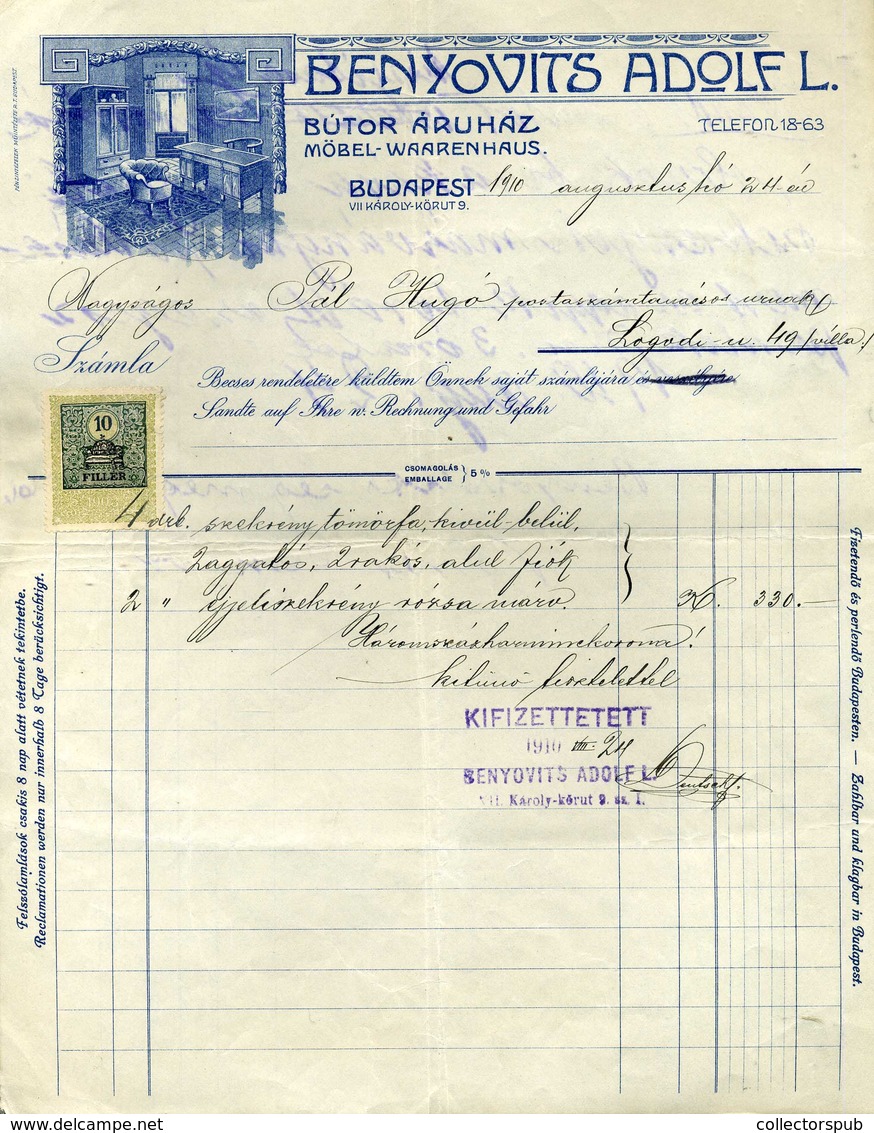 BENYOVITS ADOLF L.
BÚTOR ÁRUHÁZ
MÖBEL-WAARENHAUS.
TELEFON 18-63
BUDAPEST 1910 augusztus hó 24-én
VII KÁROLY-KÖRUT 9.
Nagyságos Pál Hugó postaszámtanácsos urnak
Lógodi-u. 49 /villa/
Számla
Becses rendeletére küldtem Önnek saját számlájára és veszélyére
Sandte auf Ihre w. Rechnung und Gefahr
10
FILLÉR
CSOMAGOLÁS
EMBALLAGE } 5%
4 drb. szekrény tömörfa, kivül-belül,
2 aggatós, 2 rakós, alul fiók
2 " éjjeliszekrény rózsa márv. K. 330.—
Háromszázharminckorona!
kitünő tisztelettel
KIFIZETTETETT
1910 VIII. 24
BENYOVITS ADOLF L.
VII. Károly-körut 9. sz. I.
Felszólamlások csakis 8 nap alatt vétetnek tekintetbe.
Reclamationen werden nur innerhalb 8 Tage berücksichtigt.
Fizetendő és perlendő Budapesten. — Zahlbar und klagbar in Budapest.
delcampe.net
collectorspub